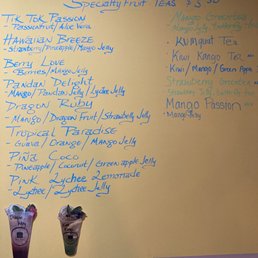 Specialty Fruit Teas $
Tik Tok Passion
- Passionfruit/Aloe Vera
Hawaiian Breeze
- Strawberry/Pineapple/Mango Jelly
Berry Love
- Berries/Mango Jelly
Pandan Delight
- Mango/Pandan Jelly/Lychee Jelly
Dragon Ruby
- Mango/Dragon Fruit/Strawberry Jelly
Tropical Paradise
- Guava/Orange/Mango Jelly
Piña Coco
- Pineapple/Coconut/Green apple Jelly
Pink Lychee Lemonade
- Lychee/Lychee Jelly
Mango
Kumquat Tea
- Kiwi Mango Tea
- Kiwi/Mango/Green Apple
Strawberry
Mango Passion
- Mango Jelly